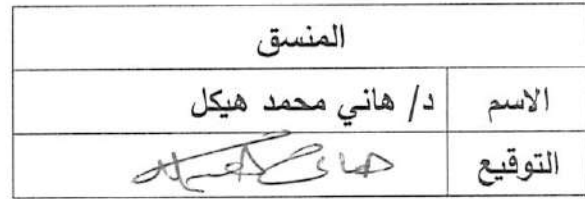 المنسق
الاسم د/ هاني محمد هيكل
التوقيع